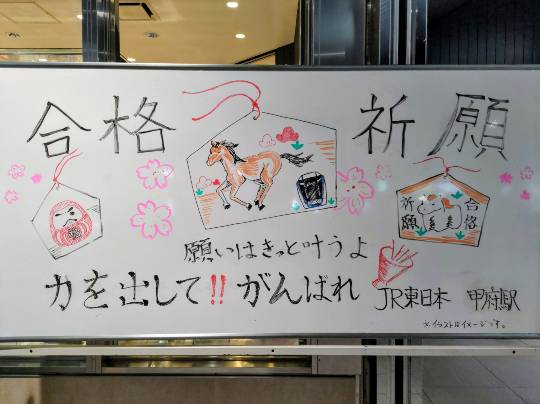 合格 祈願
祈願 合格
願いはきっと叶うよ
力を出して!! がんばれ
JR東日本 甲府駅
※イラストはイメージです。